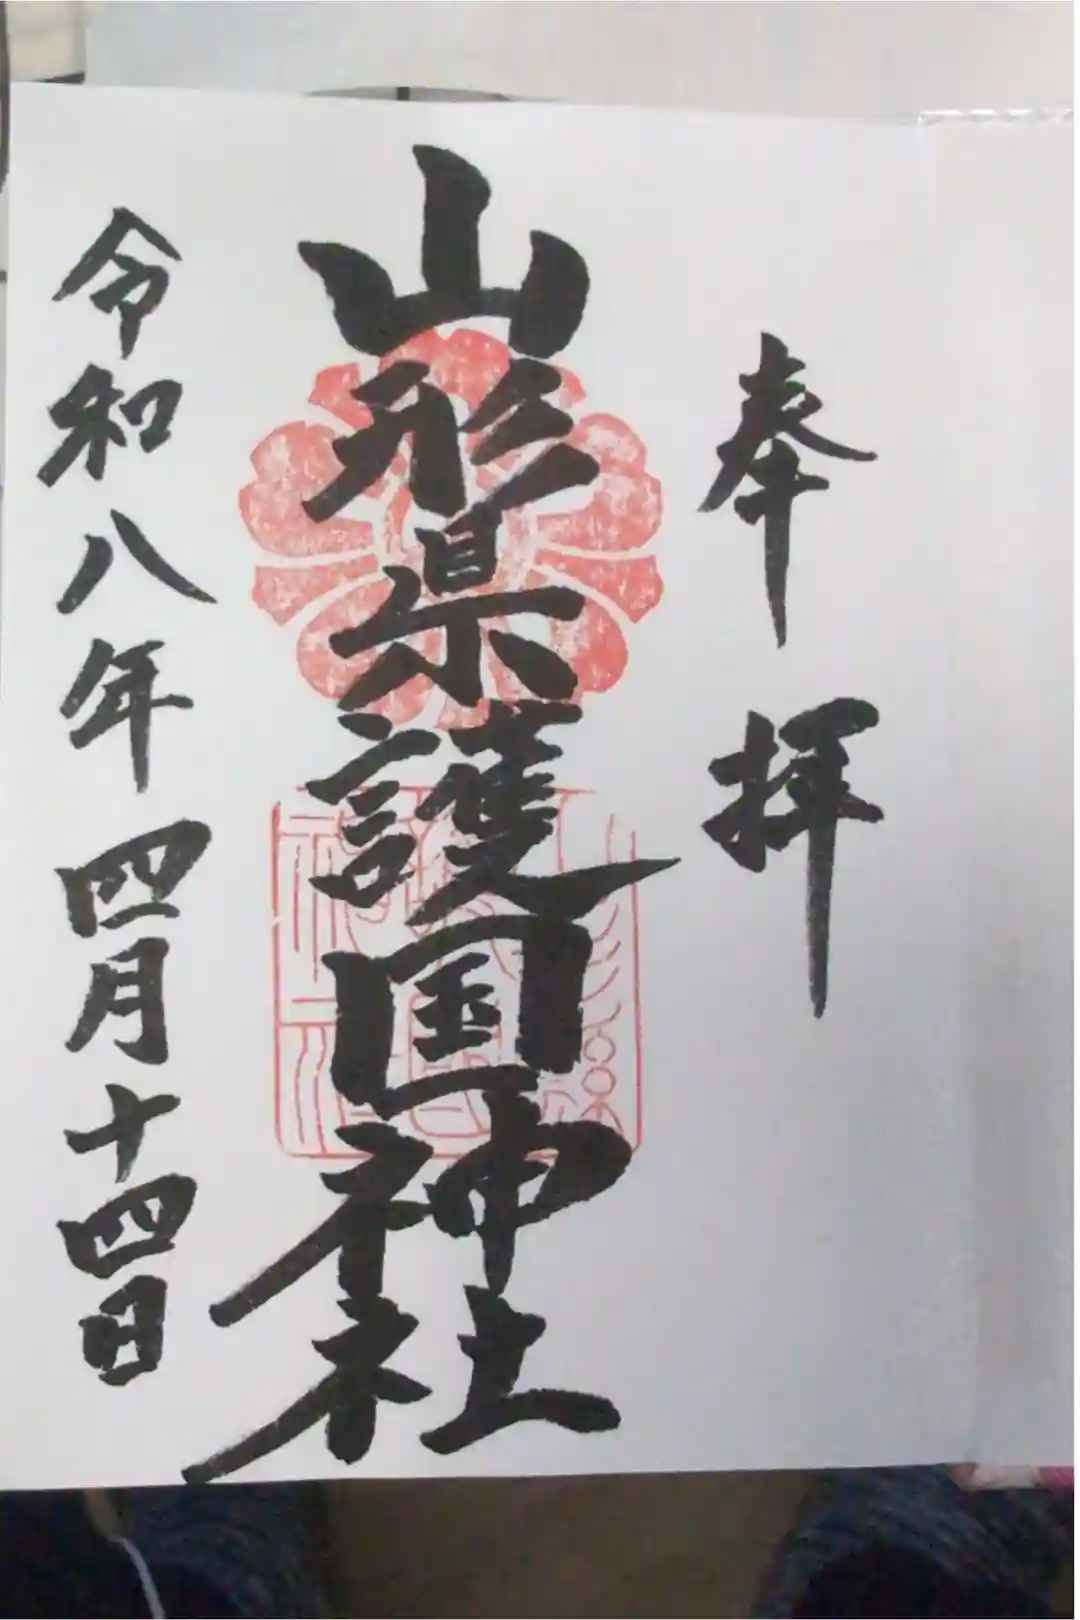 奉拝
山形県護国神社
令和八年四月十四日